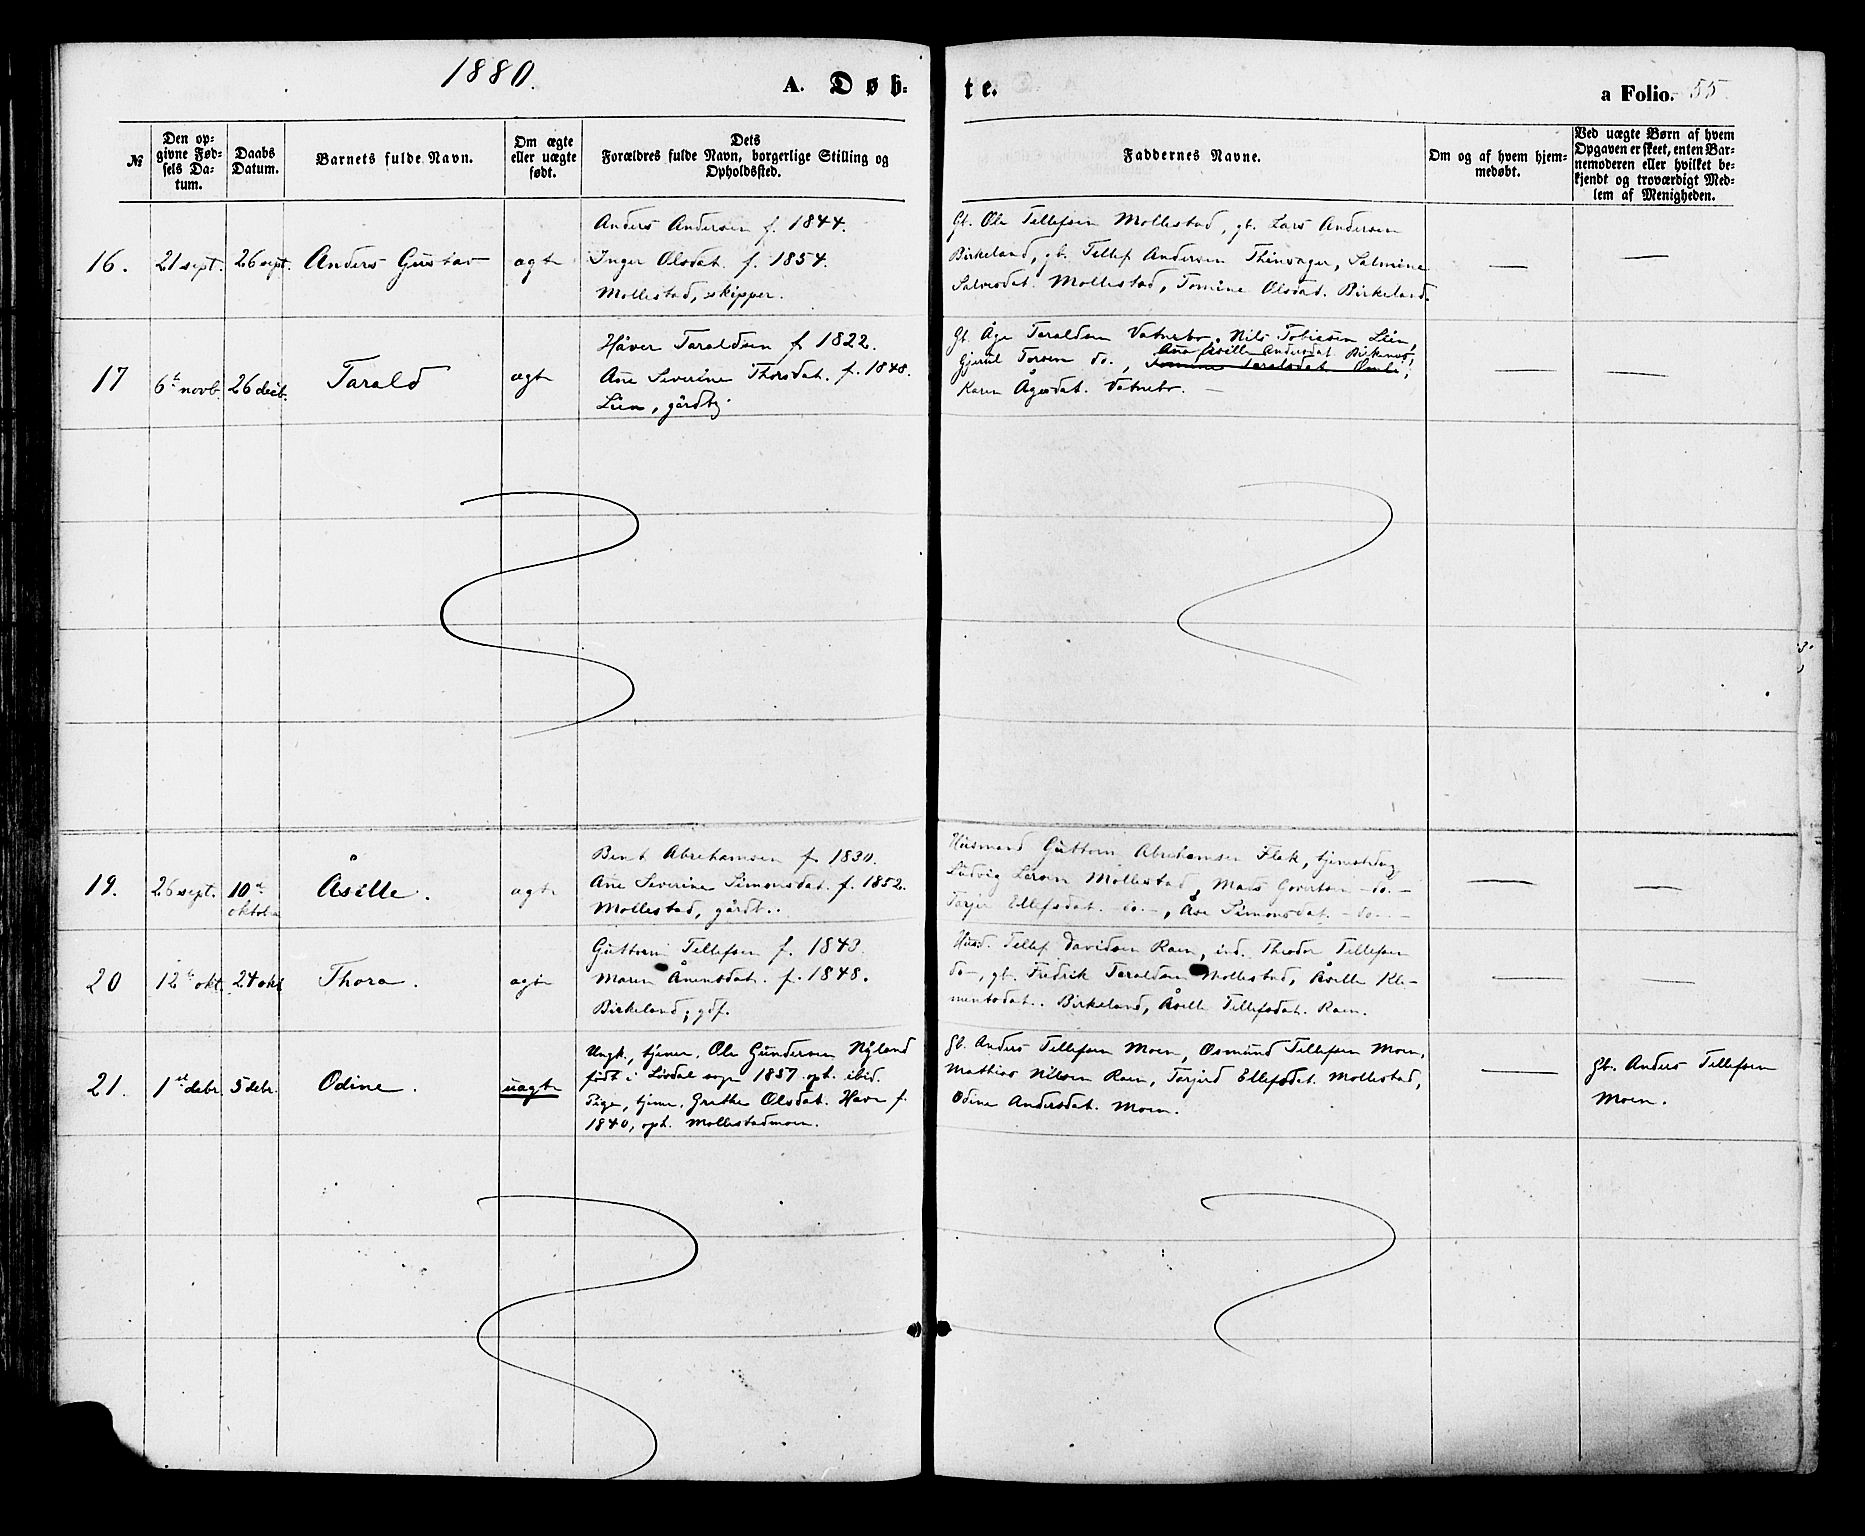 1880.
A. Døb-
te.
a Folio. 55
№
Den op-
givne Fød-
sels Da-
tum.
Daabs
Datum.
Barnets fulde Navn.
Om ægte
eller uægte
født.
Dets
Forældres fulde Navn, borgerlige Stilling og
Opholdssted.
Faddernes Navne.
Om og af hvem hjem-
medøbt.
Ved uægte Børn af hvem
Opgaven er skeet, enten Bar-
nemoderen eller hvilket be-
kjendt og troværdigt Med-
lem af Menigheden.
16. 21 sept. 26 sept. Anders Gustav ægte
Anders Andersen f. 1844.
Inger Olsdat. f. 1854.
Mollestad, skipper.
Gb. Ole Tellefsen Mollestad, gb. Lars Andersen
Birkeland, gb. Tellef Andersen Thinsager, Salmine
Salvesdat. Mollestad, Tomine Olsdat. Birkeland.
17 6te novb. 26 decb. Tarald ægte
Håver Taraldsen f. 1822.
Ane Severine Thorsdat. f. 1848.
Lien, gårdbr.
Gb. Åge Taraldsen Vatnebo, Nils Tobiasen Lien,
Ana Åsille Andersdat. Birkenes,
Gjerul Torsen do., Tomine Taraldsdat.
Karen Ågesdat. Vatnebo. —
19. 26 sept. 10de oktober Åsille. ægte
Bent Abrahamsen f. 1830.
Ane Severine Simonsdat. f. 1852.
Mollestad, gårdb.
Husmand Guttorm Abrahamsen Flak, tjenestdrg
Ludvig Larsen Mollestad, Mads Govertsen -do.-
Torjer Ellefsdat. do-, Åse Simonsdat. -do.-
20 12te okt. 24 okt Thora. ægte
Guttorm Tellefsen f. 1843.
Maren Ånensdat. f. 1848.
Birkeland, gdf.
Husd. Tellef Davidsen Raen, ind. Theodor Tellefsen
do-, gb. Fredrik Taraldsen Mollestad, Åsille Kle-
mentsdat.. Birkeland, Åsille Tellefsdat. Raen.
21. 1ste debr. 5 debr. Odine. uægte
Ungk., tjener, Ole Gundersen Nyland
født i Lovdal sogn 1857 oph. ibid.
Pige, tjene. Grethe Olsdat. Have f.
1840, oph. Mollestadmoen.
Gb. Anders Tellefsen Moen, Osmund Tellefsen Moen,
Mathias Nilsen Raen, Torjerd Ellefsdat. Mollestad,
Odine Andersdat. Moen.
Gb. Anders Tellefsen
Moen.